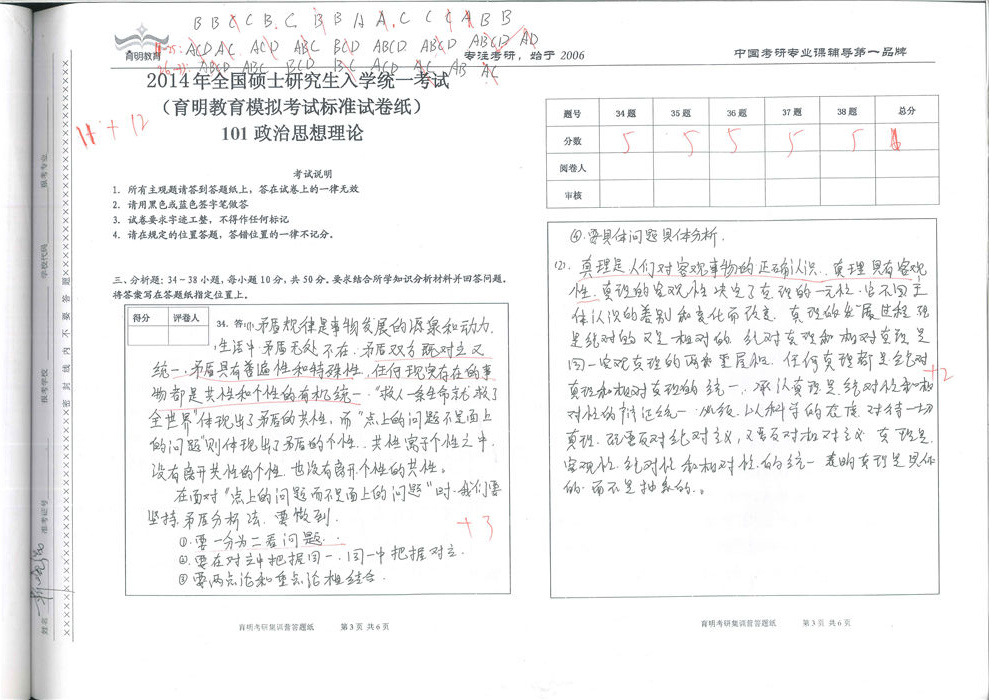 B B C C B. C B B A A. C C C A B B
育明教育
-25: ACD AC ACD ABC BCD ABCD ABCD ABCD AD
专注考研，始于 2006
中国考研专业课辅导第一品牌
2014年全国硕士研究生入学统一考试
（育明教育模拟考试标准试卷纸）
101 政治思想理论
11 + 12
考试说明
1. 所有主观题请答到答题纸上，答在试卷上的一律无效
2. 请用黑色或蓝色签字笔做答
3. 试卷要求字迹工整，不得作任何标记
4. 请在规定的位置答题，答错位置的一律不记分。
三、分析题：34－38小题，每小题10分，共50分。要求结合所学知识分析材料并回答问题，
将答案写在答题纸指定位置上。
得分 评卷人
34. 答：(1)矛盾规律是事物发展的源泉和动力，
生活中矛盾无处不在，矛盾双方既对立又
统一，矛盾具有普遍性和特殊性，任何现实存在的事
物都是共性和个性的有机统一，"救人一条生命就救了
全世界"体现出了矛盾的共性，而"点上的问题不是面上
的问题"则体现出了矛盾的个性。共性寓于个性之中，
没有离开共性的个性，也没有离开个性的共性。
在面对"点上的问题而不是面上的问题"时，我们要
坚持矛盾分析法，要做到．
①要一分为二看问题．
②要在对立中把握同一，同一中把握对立．
③要两点论和重点论相结合．
+3
育明考研集训营答题纸 第3页 共6页
题号 34题 35题 36题 37题 38题 总分
分数 5 5 5 5 5
阅卷人
审核
④要具体问题具体分析．
(2). 真理是人们对客观事物的正确认识．真理具有客观
性，真理的客观性决定了真理的一元性，它不因主
体认识的差别和变化而改变，真理的发展过程既
是绝对的又是相对的，绝对真理和相对真理是
同一客观真理的两重属性，任何真理都是绝对
真理和相对真理的统一，承认真理是绝对性和相
对性的辩证统一，必须以科学的态度对待一切
真理，既要反对绝对主义，又要反对相对主义．真理是
客观性、绝对性和相对性的统一，表明真理是具体
的，而不是抽象的。
+2
育明考研集训营答题纸 第3页 共6页
报考专业
学校代码
报考学校
报考证号
姓名
密封线内不要答题